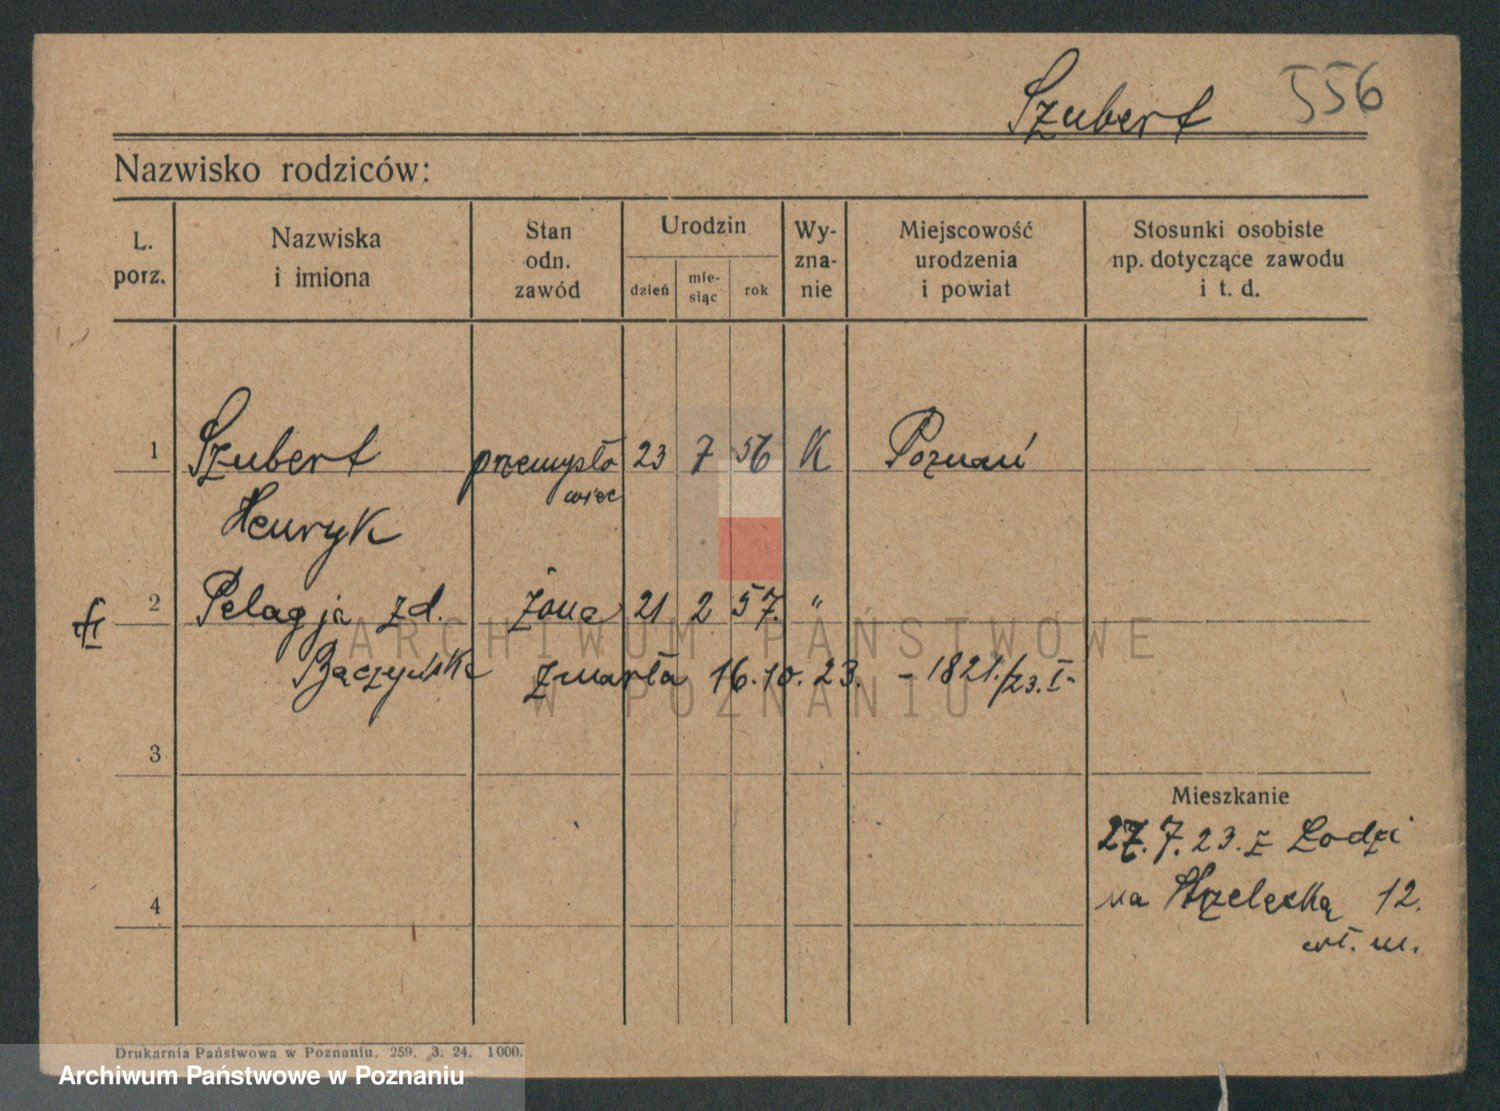 Szubert 556
Nazwisko rodziców:
L. porz.
Nazwiska i imiona
Stan odn. zawód
Urodzin
dzień
mie-
siąc
rok
Wy-
zna-
nie
Miejscowość urodzenia i powiat
Stosunki osobiste np. dotyczące zawodu i t. d.
1 Szubert przemysło 23 7 56 K Poznań
wiec
Henryk
2 Pelagja zd. żona 21 2 57. "
Bączyńska zmarła 16.10.23. - 1821/23.I-
3
Mieszkanie
27.7.23. z Łodzi
4 na Strzelecką 12.
wł. m.
ARCHIWUM PAŃSTWOWE
W POZNANIU
Drukarnia Państwowa w Poznaniu. 259. 3. 24. 1000.
Archiwum Państwowe w Poznaniu